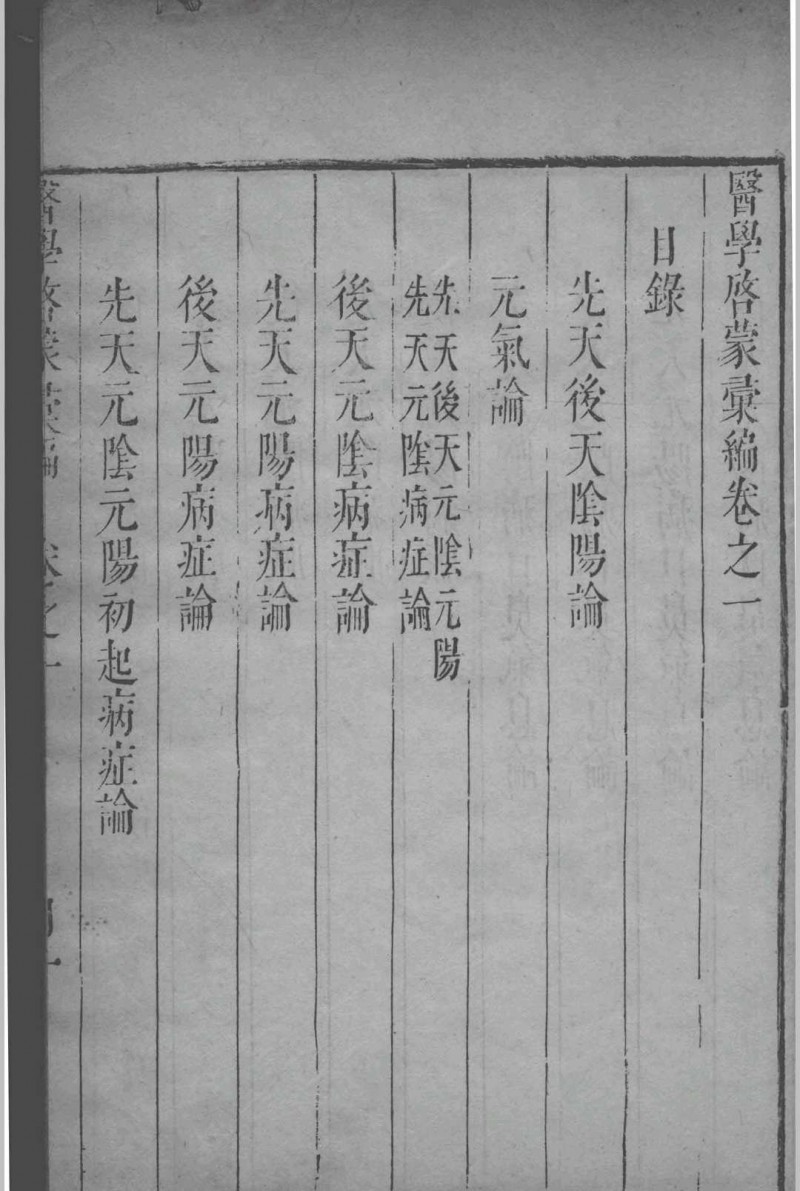 醫學啓蒙彙編卷之一
目錄
先天後天陰陽論
元氣論
先天後天元陰元陽
先天元陰病症論
後天元陰病症論
先天元陽病症論
後天元陽病症論
先天元陰元陽初起病症論
醫學啓蒙彙編 卷之一